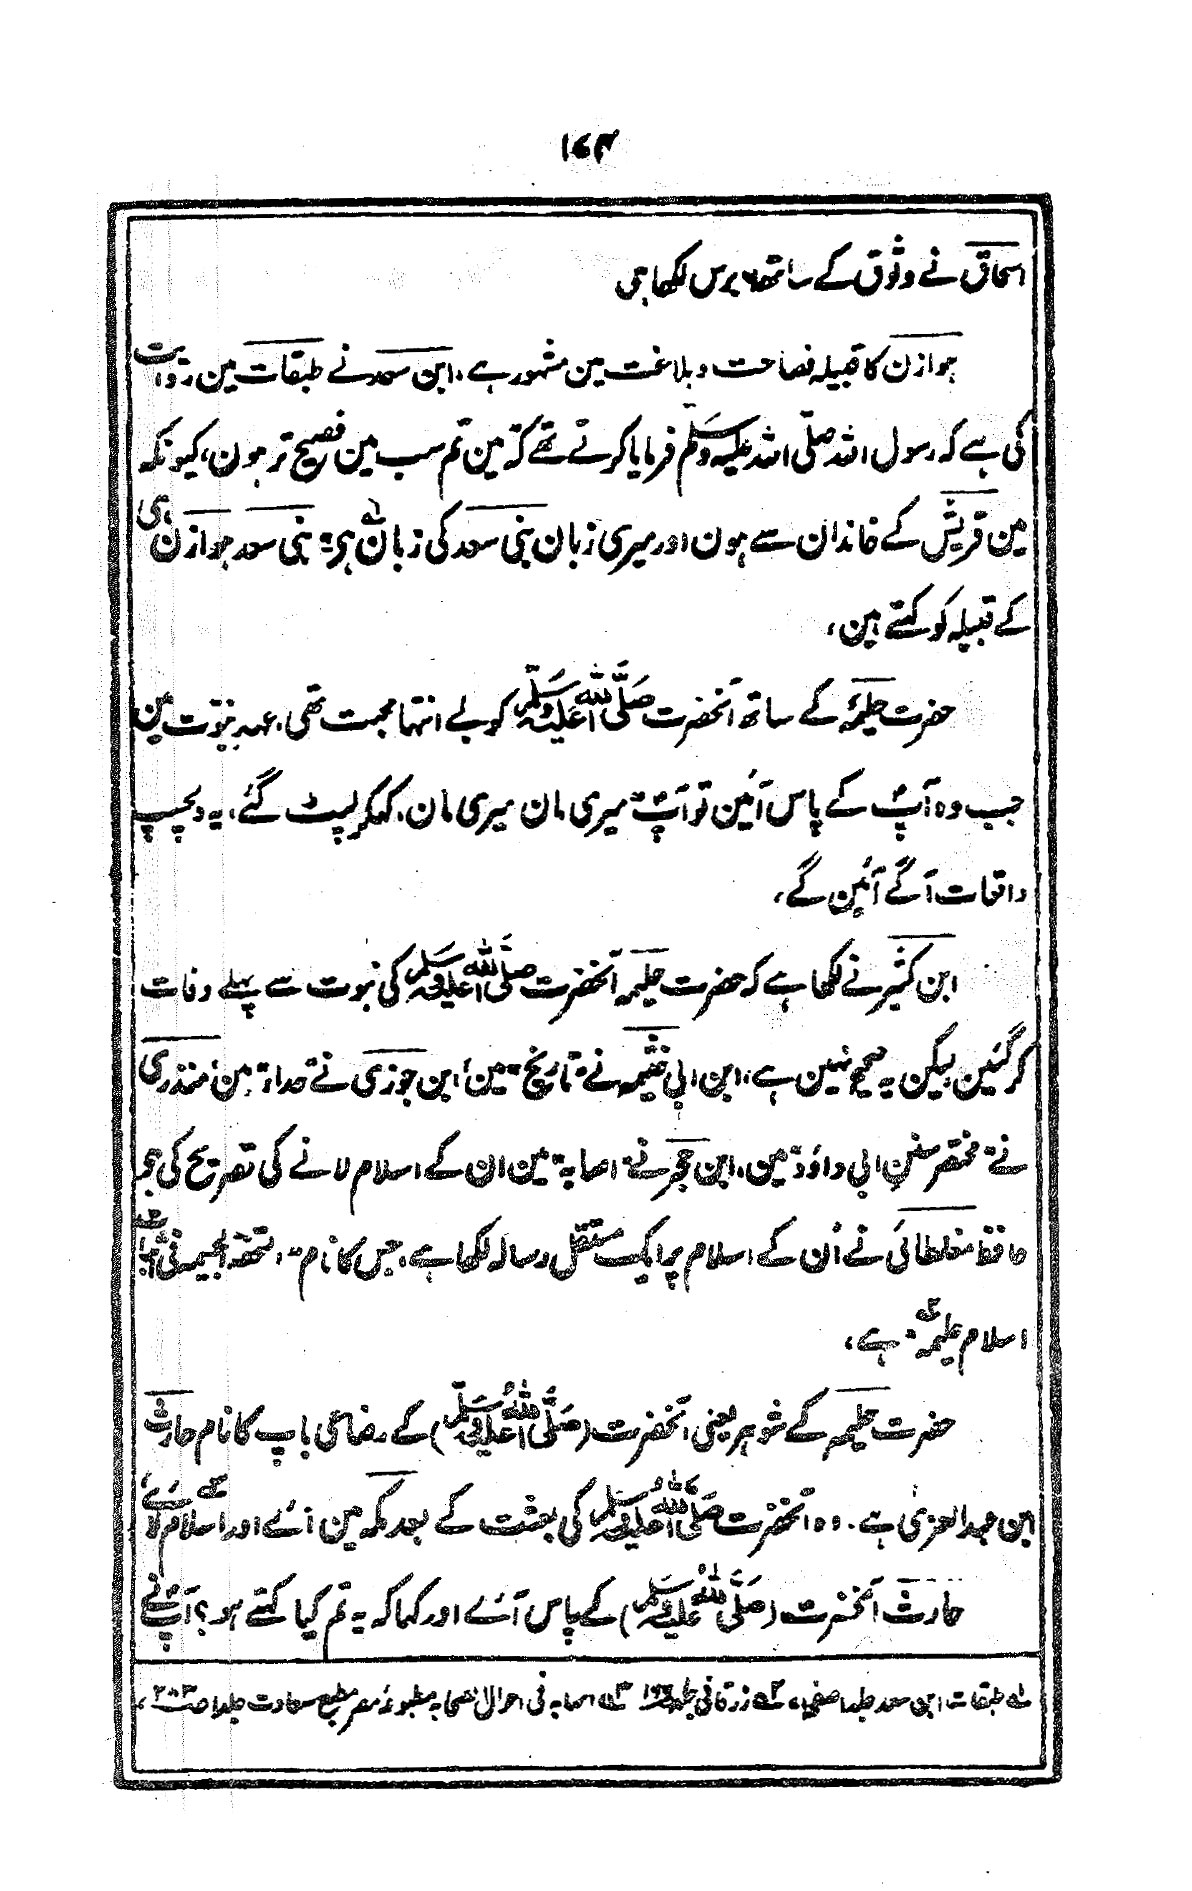 ۱۷۴
اسحاق نے وثوق کے ساتھ ۶ برس لکھا ہی
ہوازن کا قبیلہ فصاحت و بلاغت مین مشہور ہے، ابن سعد نے طبقات مین روایت
کی ہے کہ رسول اللہ صلی اللہ علیہ وسلم فرمایا کرتے تھے کہ مین تم سب مین فصیح تر ہون، کیونکہ
مین قریش کے خاندان سے ہون اور میری زبان بنی سعد کی زبان ہی" بنی سعد ہوازن ہی
کے قبیلہ کو کہتے ہین،
حضرت حلیمہ کے ساتھ آنحضرت صلی اللہ علیہ وسلم کو بے انتہا محبت تھی، عہد نبوت مین
جب وہ آپ کے پاس آئین تو آپ "میری مان میری مان" کہکر لپٹ گئے، یہ دلچسپ
واقعات آگے آئین گے،
ابن کثیر نے لکھا ہے کہ حضرت حلیمہ آنحضرت صلی اللہ علیہ وسلم کی نبوت سے پہلے وفات
کر گئین لیکن یہ صحیح نہین ہے، ابن ابی خثیمہ نے "تاریخ" مین، ابن جوزی نے "حداء" مین، منذری
نے "مختصر سنن ابی داؤد" مین، ابن حجر نے "اصابہ" مین ان کے اسلام لانے کی تصریح کی ہے
حافظ مغلطائی نے اُن کے اسلام پر ایک مستقل رسالہ لکھا ہے، جس کا نام "التحفۃ الجسیمہ فی اثبات
اسلام حلیمہ" ہے،
حضرت حلیمہ کے شوہر یعنی آنحضرت (صلی اللہ علیہ وسلم) کے رضاعی باپ کا نام حارث
ابن عبدالعزیٰ ہے۔ وہ آنحضرت صلی اللہ علیہ وسلم کی بعثت کے بعد مکہ مین آئے اور اسلام لائے
حارث آنحضرت (صلی اللہ علیہ وسلم) کے پاس آئے اور کہا کہ یہ تم کیا کہتے ہو؟ آپ نے
۱؎ طبقات ابن سعد جلد ۱ صفحہ ۲؎ زرقانی جلد ۱ ۳؎ اصابہ فی احوال الصحابہ مطبوعۂ مصر مطبع سعادت جلد ۱ ص ۲۸۳،